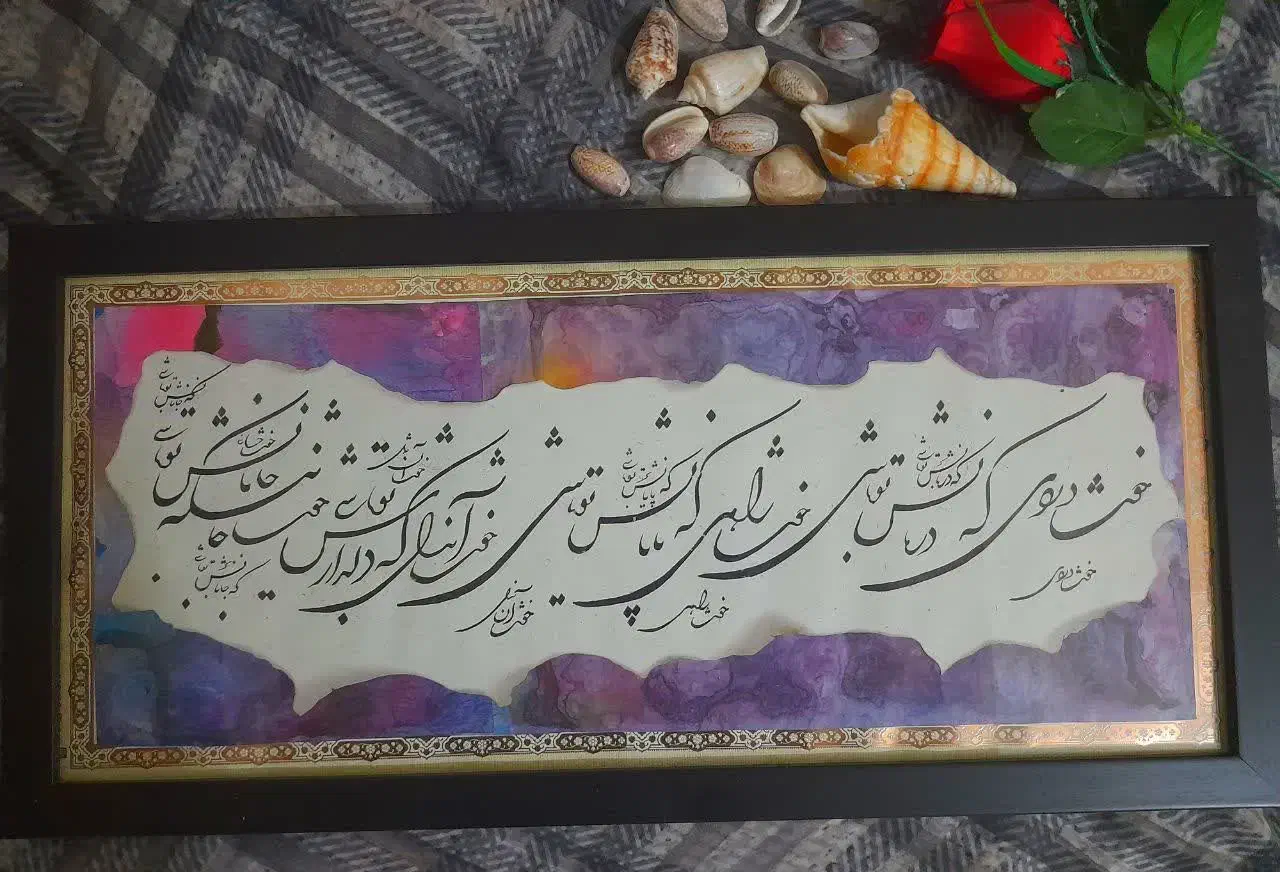 خوشا دردی که درمانش تو باشی
خوشا راهی که پایانش تو باشی
خوشا آندل که دلدارش تو باشی
خوشا جانی که جانانش تو باشی
خوشا دردی
که درمانش تو باشی
خوشا راهی
که پایانش تو باشی
خوشا جانی
که جانانش تو باشی
که جانانش تو باشی